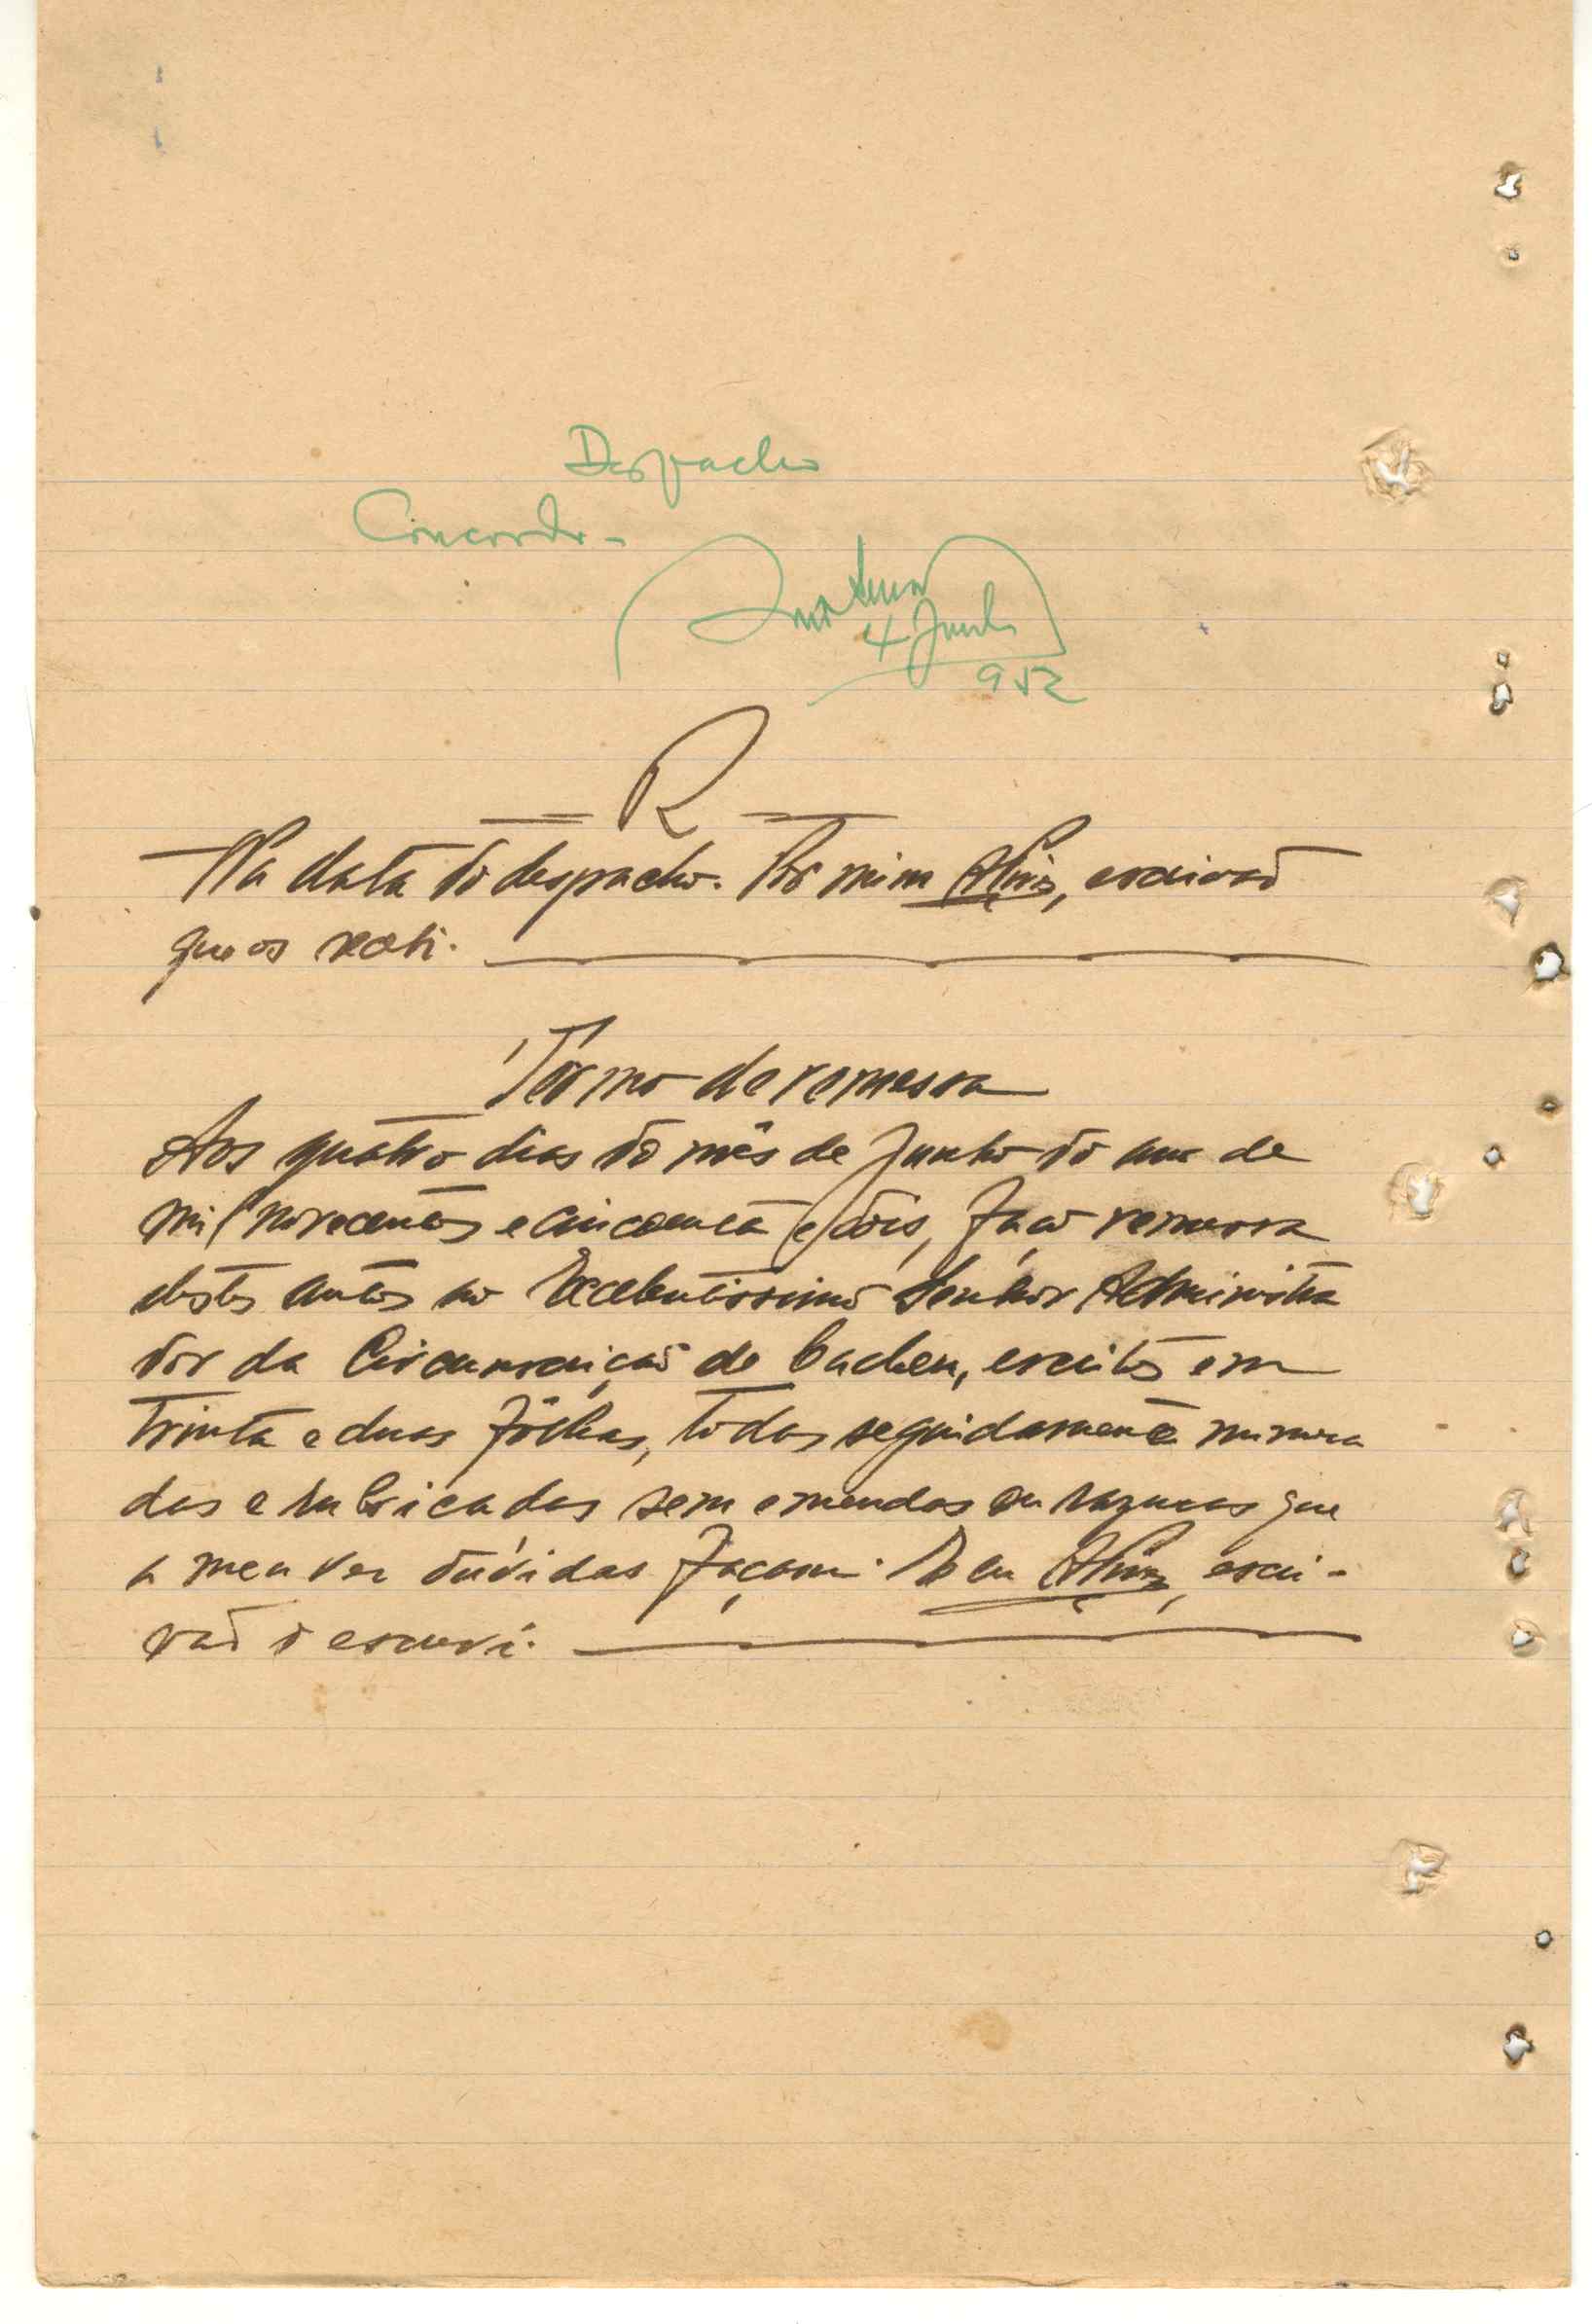 Despacho
Concordo -
4 Junho
952
R
Na data do despacho. Por mim escrivão
que os recebi.
Têrmo de remessa
Aos quatro dias do mês de Junho do ano de
mil novecentos e cincoenta e dois, faço remessa
destes autos ao Excelentíssimo Senhor Administra
dor da Circunscrição de Cacheu, escritos em
trinta e duas fôlhas, todas seguidamente numera
das e rubricadas sem emendas ou razuras que
a meu ver dúvidas façam. E eu escri-
vão o escreví.